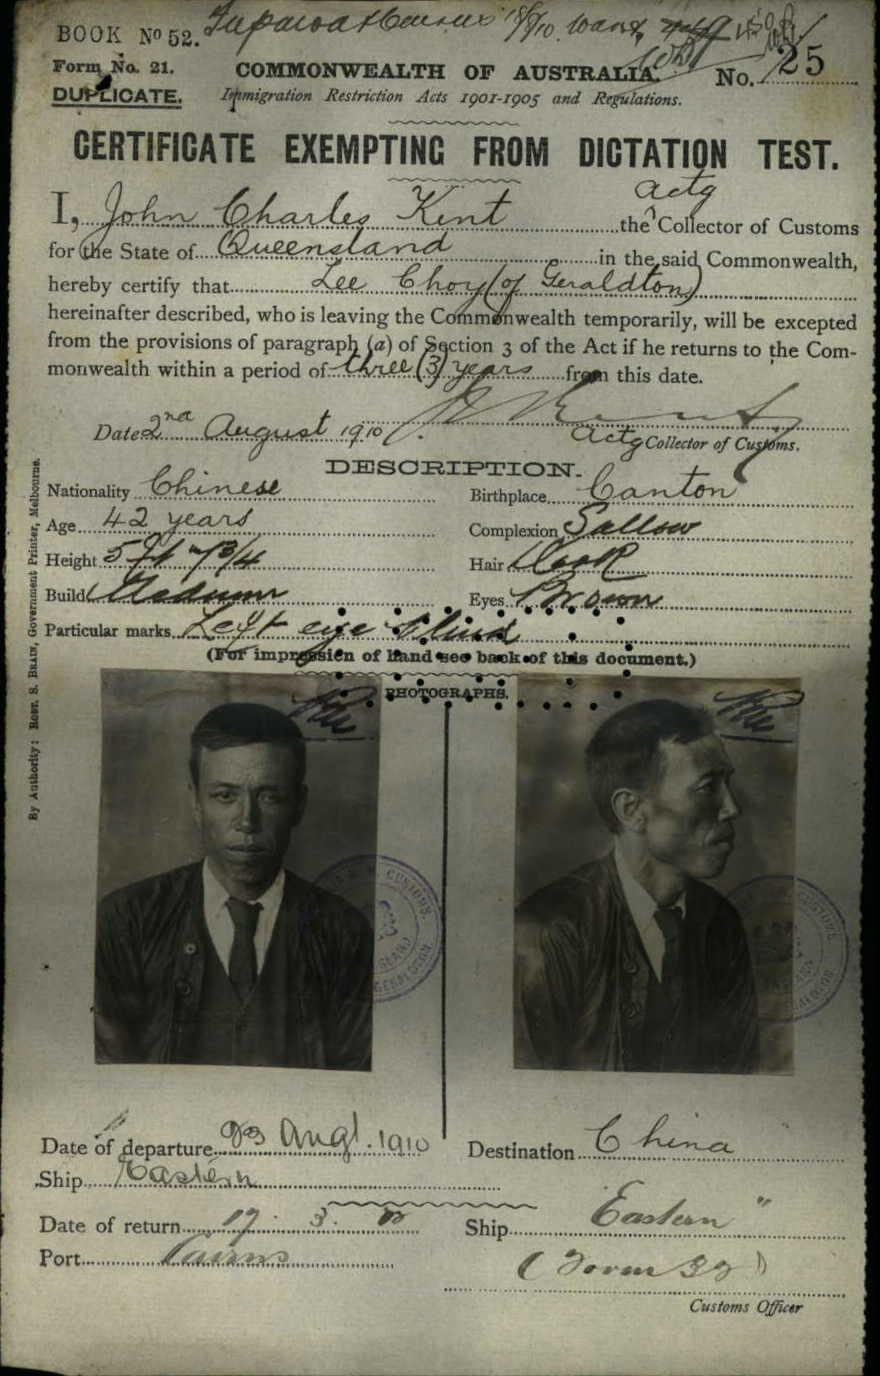 BOOK No 52.
Form No. 21.
COMMONWEALTH OF AUSTRALIA. No. 25
DUPLICATE.
Immigration Restriction Acts 1901-1905 and Regulations.
CERTIFICATE EXEMPTING FROM DICTATION TEST.
actg
I, John Charles Kent the Collector of Customs
for the State of Queensland in the said Commonwealth,
hereby certify that Lee Choy (of Geraldton)
hereinafter described, who is leaving the Commonwealth temporarily, will be excepted
from the provisions of paragraph (a) of Section 3 of the Act if he returns to the Com-
monwealth within a period of three (3) years from this date.
Date 2nd August 1910
Actg Collector of Customs.
DESCRIPTION.
Nationality Chinese Birthplace Canton
Age 42 years Complexion Sallow
Height 5 ft 7 3/4 Hair
Build Medium Eyes Brown
Particular marks Left eye
(For impression of hand see back of this document.)
PHOTOGRAPHS.
By Authority: ROBT. S. BRAIN, Government Printer, Melbourne.
CUSTOMS.
GERALDTON.
Date of departure Augt. 1910 Destination China
Ship Eastern
Date of return 17. 3. Ship Eastern "
Port Cairns (Form 32)
Customs Officer